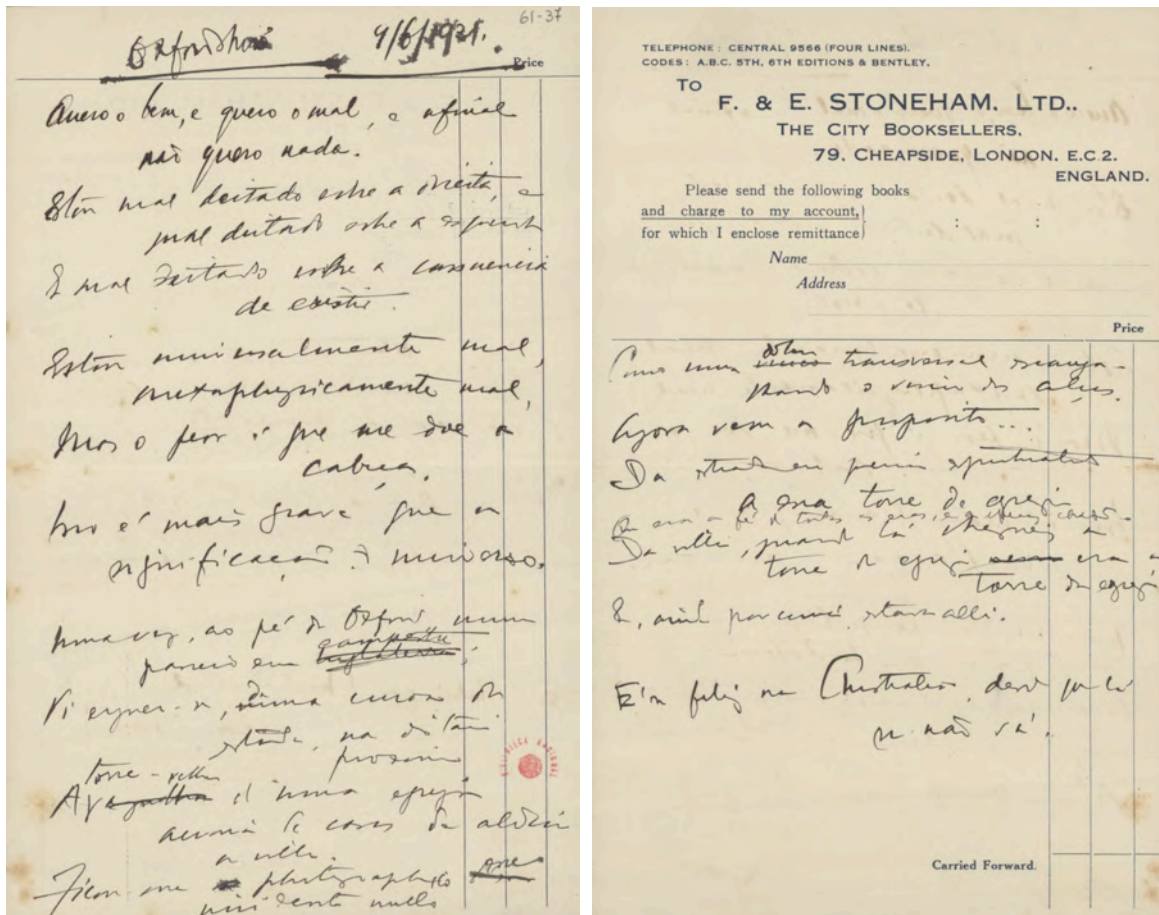 61-37
Oxfordshire 4/6/1931.
Price
Quero o bem, e quero o mal, e afinal
não quero nada.
Estou mal deitado sobre a direita, e
mal deitado sobre a esquerda
E mal deitado sobre a consciencia
de existir.
Estou universalmente mal,
metaphysicamente mal,
Mas o peor é que me doe a
cabeça.
Isso é mais grave que a
significação do universo.
Uma vez, ao pé de Oxford, num
passeio campestre,
Vi erguer-se, duma curva da
estrada, na distancia
proxima
A torre-velha d'uma egreja
acima de casas da aldeia
ou villa.
Ficou-me photographado esse
incidente nullo
TELEPHONE: CENTRAL 9566 (FOUR LINES).
CODES: A.B.C. 5TH, 6TH EDITIONS & BENTLEY.
TO
F. & E. STONEHAM. LTD.,
THE CITY BOOKSELLERS.
79, CHEAPSIDE, LONDON. E.C 2.
ENGLAND.
Please send the following books
and charge to my account,
for which I enclose remittance } : :
Name
Address
Price
Como uma dobra transversal escanga-
lhando o vinco das calças.
Agora vem a proposito...
Da estrada eu previa espiritualidade
a essa torre de egreja
Que era a fé de todas as eras, e a efficaz caridade.
Da villa, quando lá cheguei, a
torre da egreja era a
torre da egreja
E, ainda por cima, estava alli.
É-se feliz na Australia, desde que lá
se não vá.
Carried Forward.